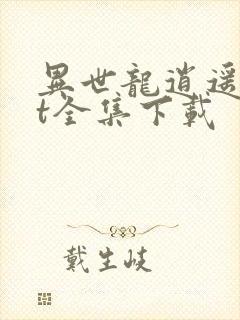 異世龍逍遥
t全集下載
戴生岐